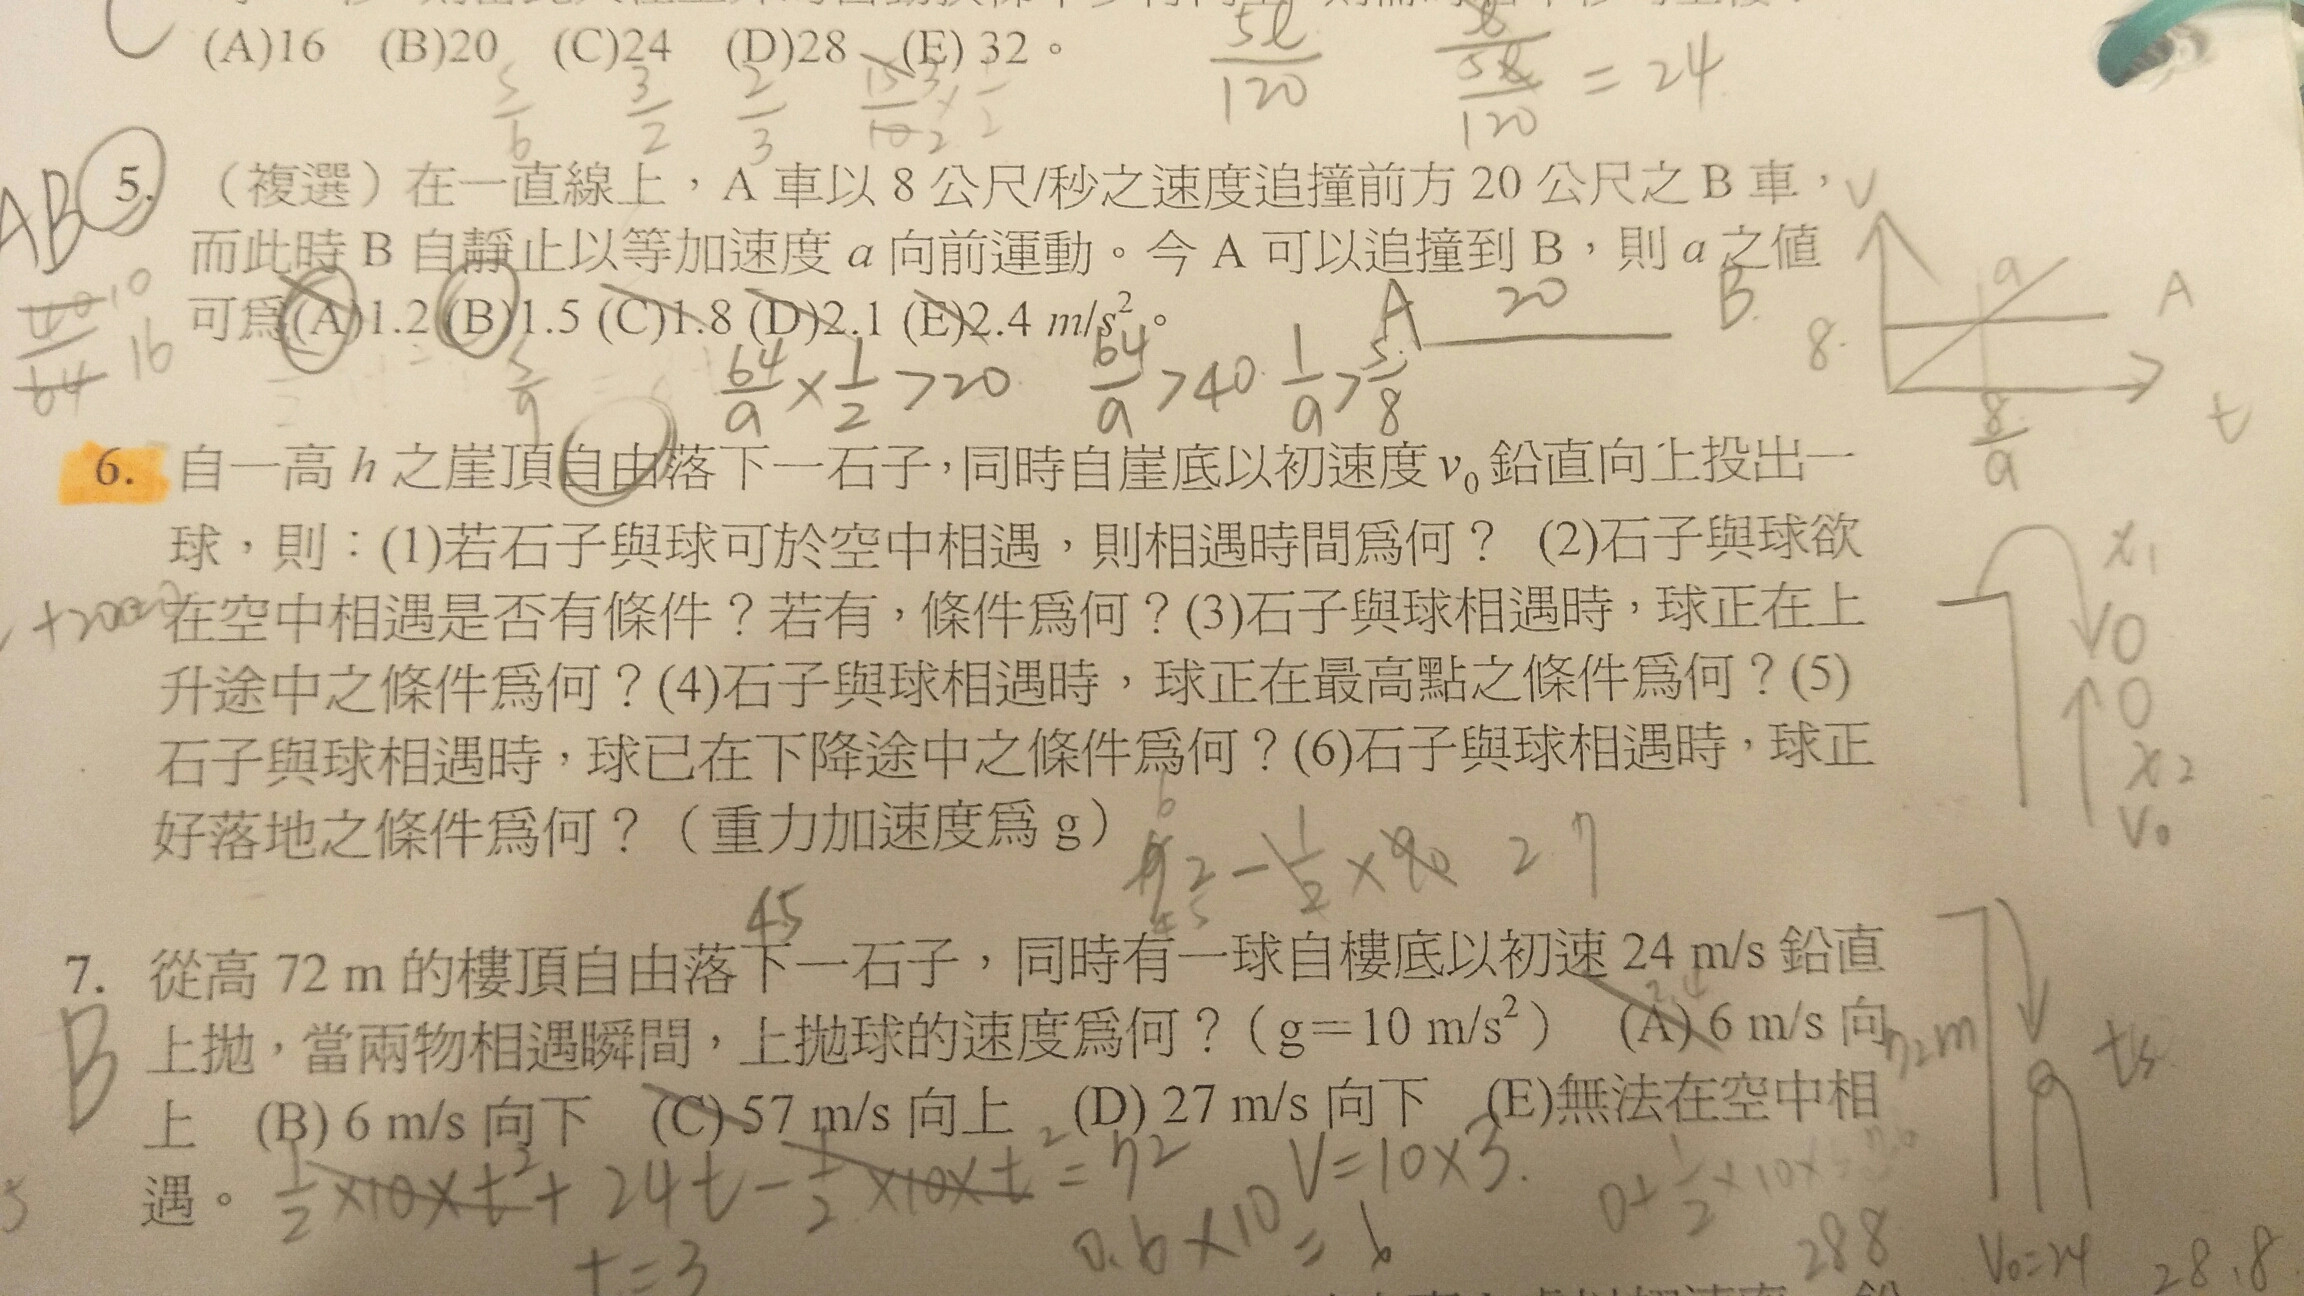 (A)16 (B)20 (C)24 (D)28 (E) 32。
5l/120
= 24
5/6 3/2 2/3
AB 5. （複選）在一直線上，A 車以 8 公尺/秒之速度追撞前方 20 公尺之 B 車，
而此時 B 自靜止以等加速度 a 向前運動。今 A 可以追撞到 B，則 a 之值
可為(A)1.2 (B)1.5 (C)1.8 (D)2.1 (E)2.4 m/s²。
A 20 B
V a A 8 8/a t
64/a × 1/2 > 20 64/a > 40 1/a > 5/8
6. 自一高 h 之崖頂自由落下一石子，同時自崖底以初速度 v₀ 鉛直向上投出一
球，則：(1)若石子與球可於空中相遇，則相遇時間為何？ (2)石子與球欲
在空中相遇是否有條件？若有，條件為何？(3)石子與球相遇時，球正在上
升途中之條件為何？(4)石子與球相遇時，球正在最高點之條件為何？(5)
石子與球相遇時，球已在下降途中之條件為何？(6)石子與球相遇時，球正
好落地之條件為何？（重力加速度為 g）
x₁
0
0
x₂
V₀
45
27
7. 從高 72 m 的樓頂自由落下一石子，同時有一球自樓底以初速 24 m/s 鉛直
上拋，當兩物相遇瞬間，上拋球的速度為何？（g＝10 m/s²） (A) 6 m/s 向
上 (B) 6 m/s 向下 (C) 57 m/s 向上 (D) 27 m/s 向下 (E)無法在空中相
遇。
B
1/2 ×10×t² + 24t - 1/2 ×10×t² = 72
t=3
V=10×3
0.6×10 = 6
288
72m
ts
V₀=24
28.8